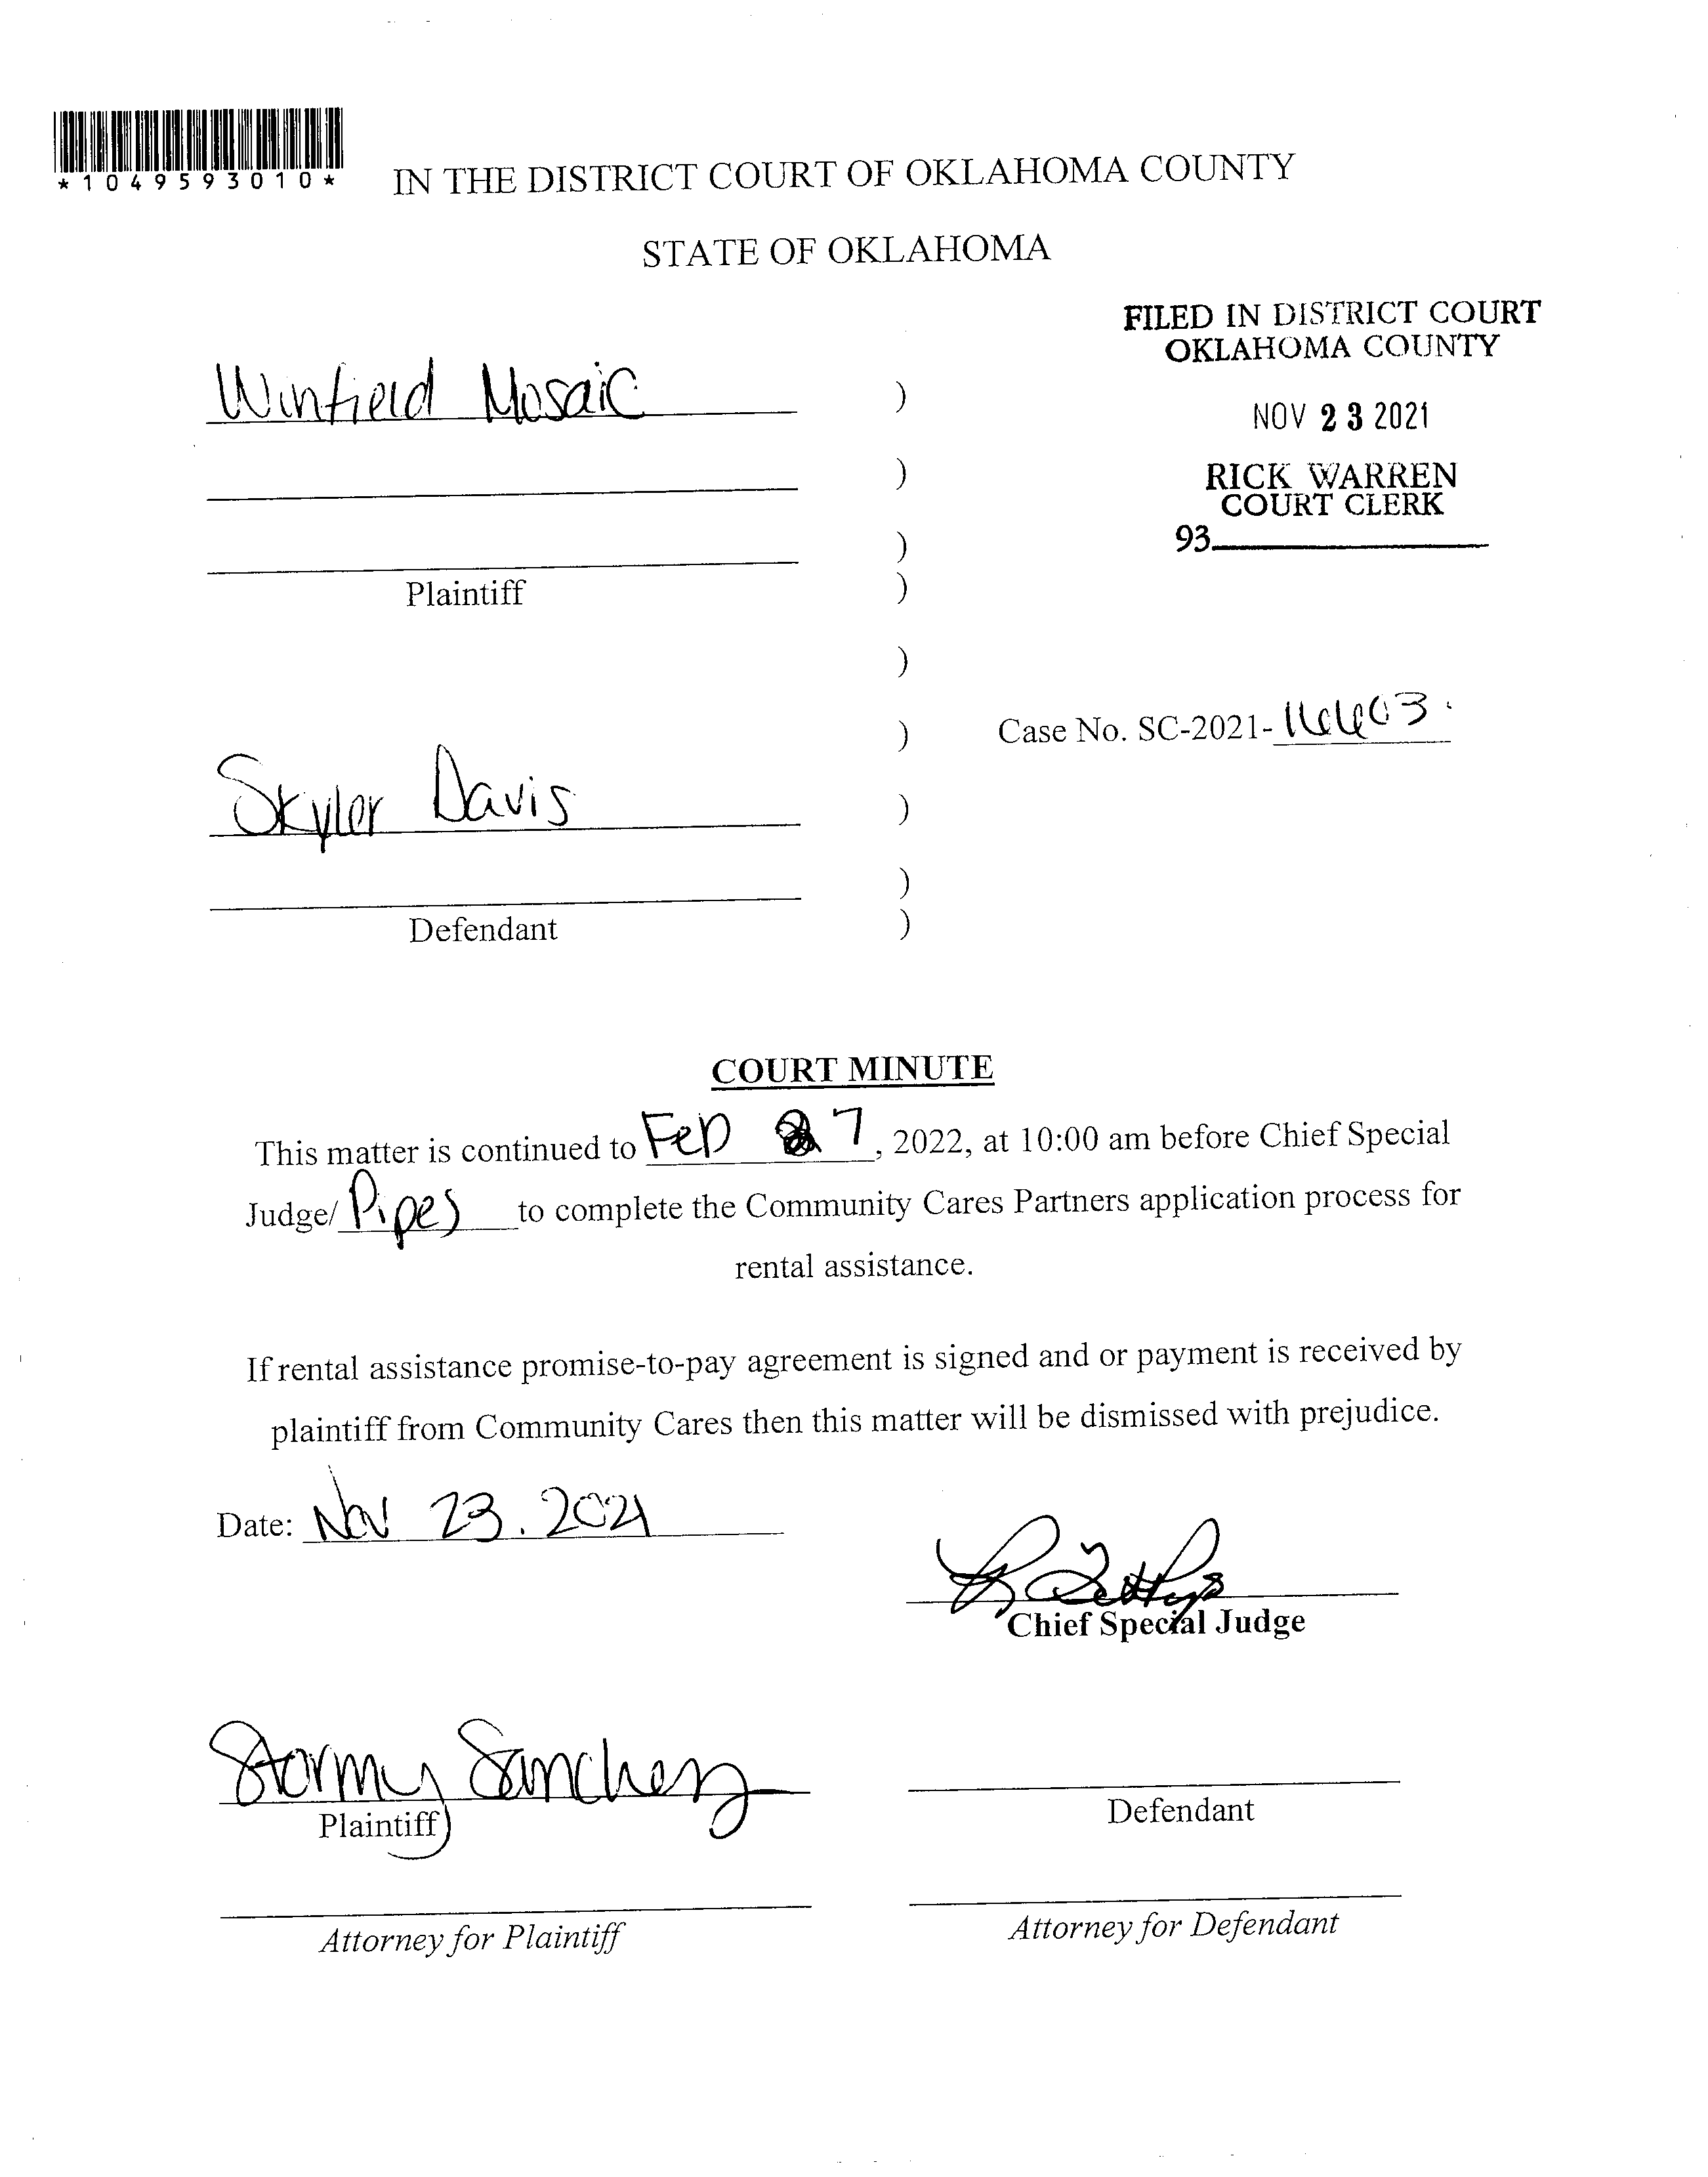 *1049593010*
IN THE DISTRICT COURT OF OKLAHOMA COUNTY
STATE OF OKLAHOMA
FILED IN DISTRICT COURT
OKLAHOMA COUNTY
NOV 23 2021
RICK WARREN
COURT CLERK
93
Winfield Mosaic )
)
)
Plaintiff )
)
) Case No. SC-2021-16603
Skyler Davis )
)
Defendant )
COURT MINUTE
This matter is continued to Feb 7, 2022, at 10:00 am before Chief Special
Judge/ Pipes to complete the Community Cares Partners application process for
rental assistance.
If rental assistance promise-to-pay agreement is signed and or payment is received by
plaintiff from Community Cares then this matter will be dismissed with prejudice.
Date: Nov 23. 2021
Chief Special Judge
Stormy Sanchez
Plaintiff
Defendant
Attorney for Plaintiff
Attorney for Defendant